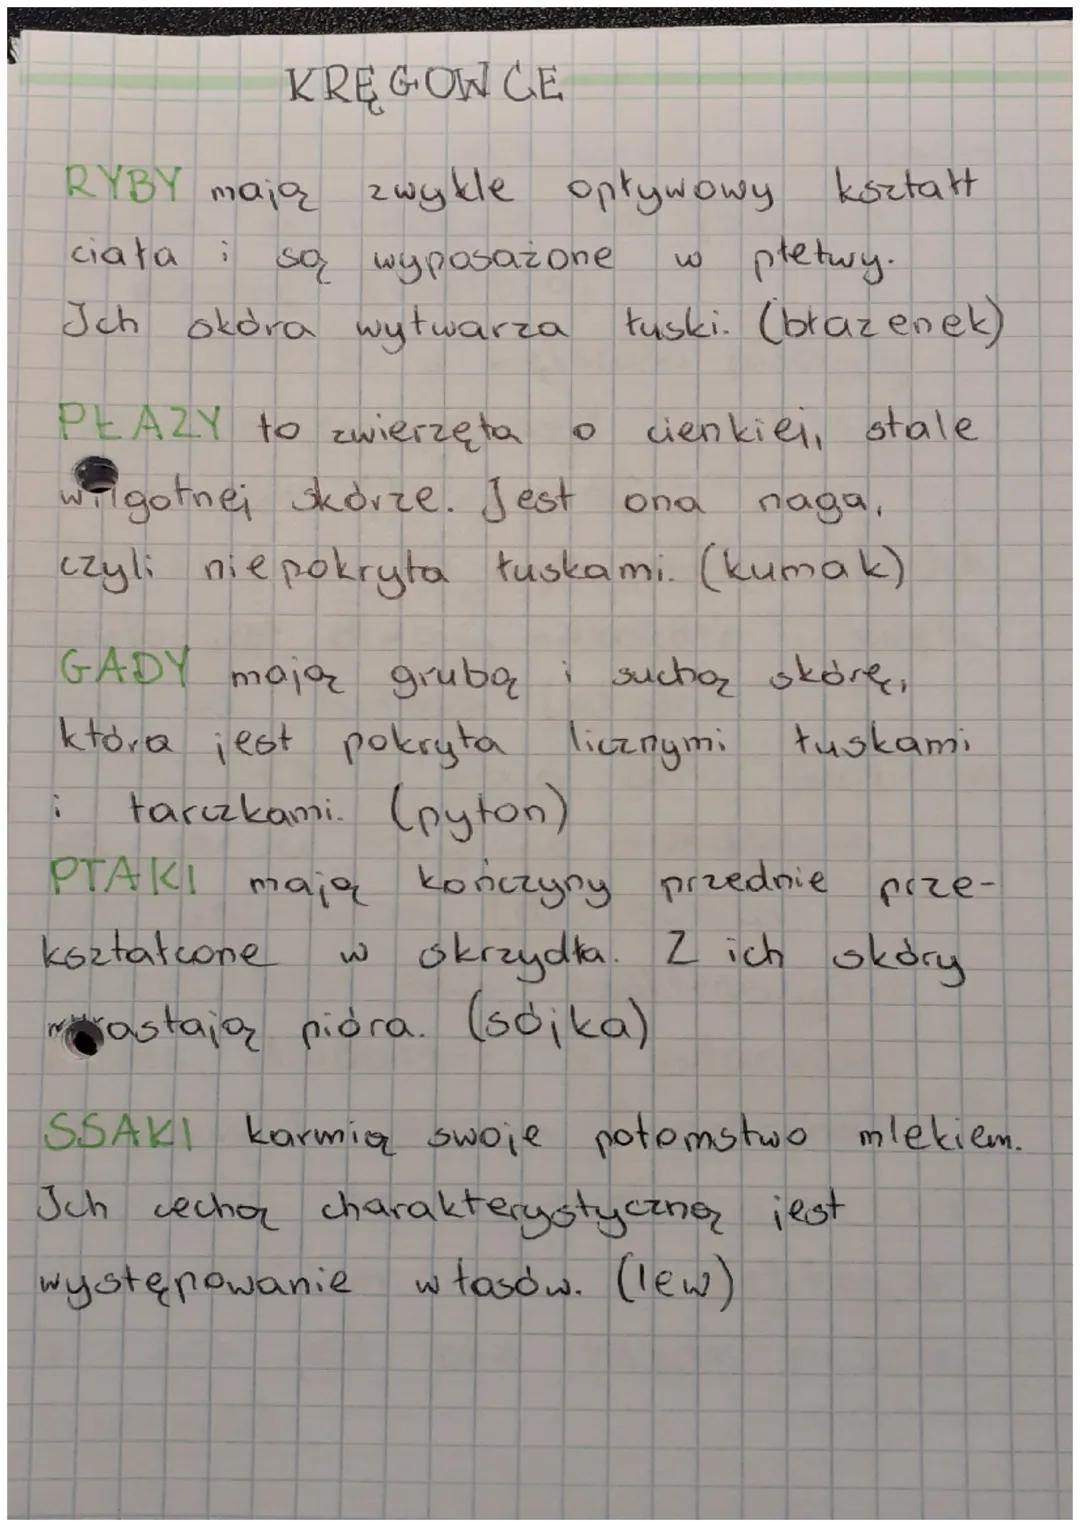 KRĘGOWCE
RYBY mają zwykle opływowy kształt
ciała i są wyposażone w płetwy.
Ich skóra wytwarza łuski. (błazenek)
PŁAZY to zwierzęta o cienkiej, stale
wilgotnej skórze. Jest ona naga,
czyli niepokryta łuskami. (kumak)
GADY mają grubą i suchą skórę,
która jest pokryta licznymi łuskami
i tarczkami. (pyton)
PTAKI mają kończyny przednie prze-
kształcone w skrzydła. Z ich skóry
pióra. (sójka)
SSAKI karmią swoje potomstwo mlekiem.
Ich cechą charakterystyczną jest
występowanie włosów. (lew)